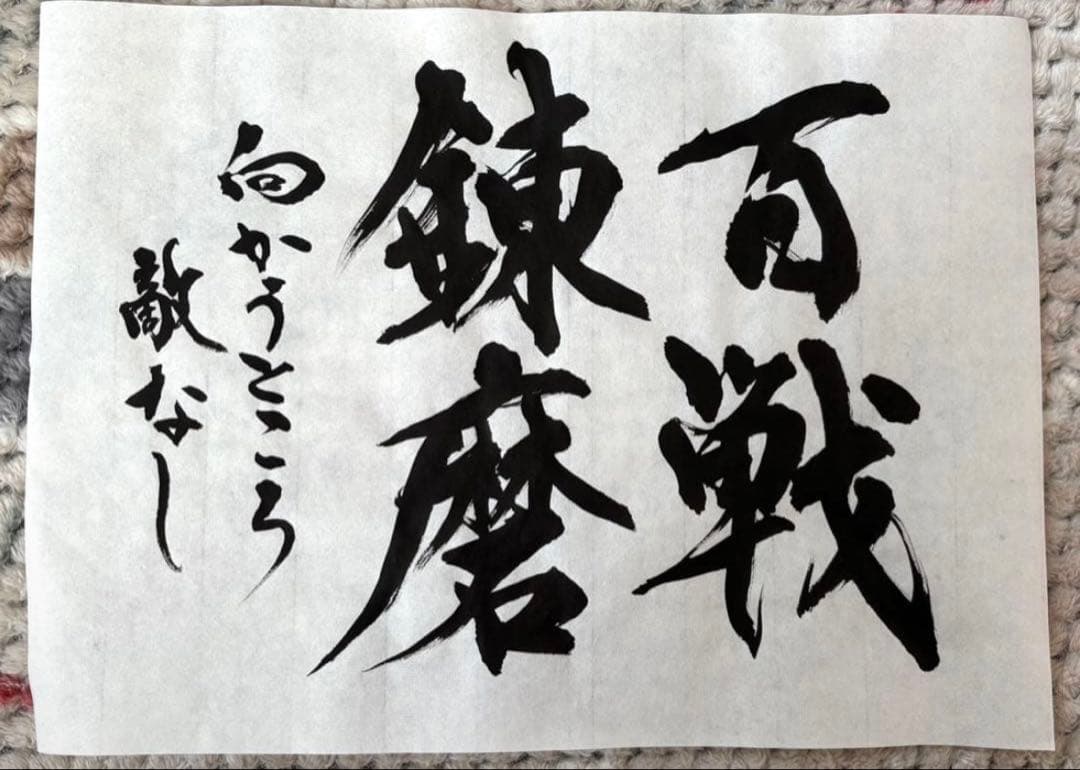 百戦
錬磨
向かうところ
敵なし